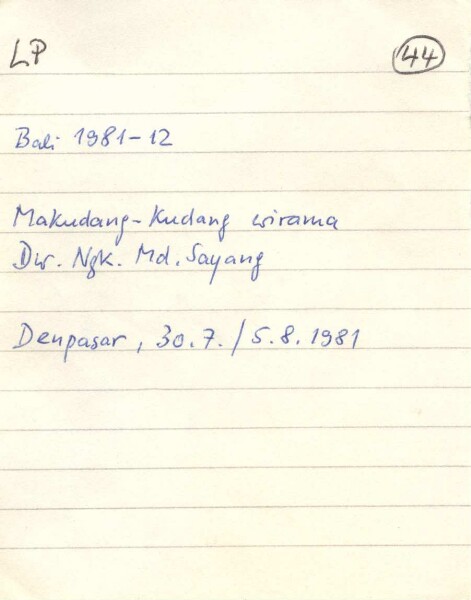 LP 44
Bali 1981-12
Makudang-Kudang wirama
Dw. Ngk. Md. Sayang
Denpasar, 30.7./5.8.1981